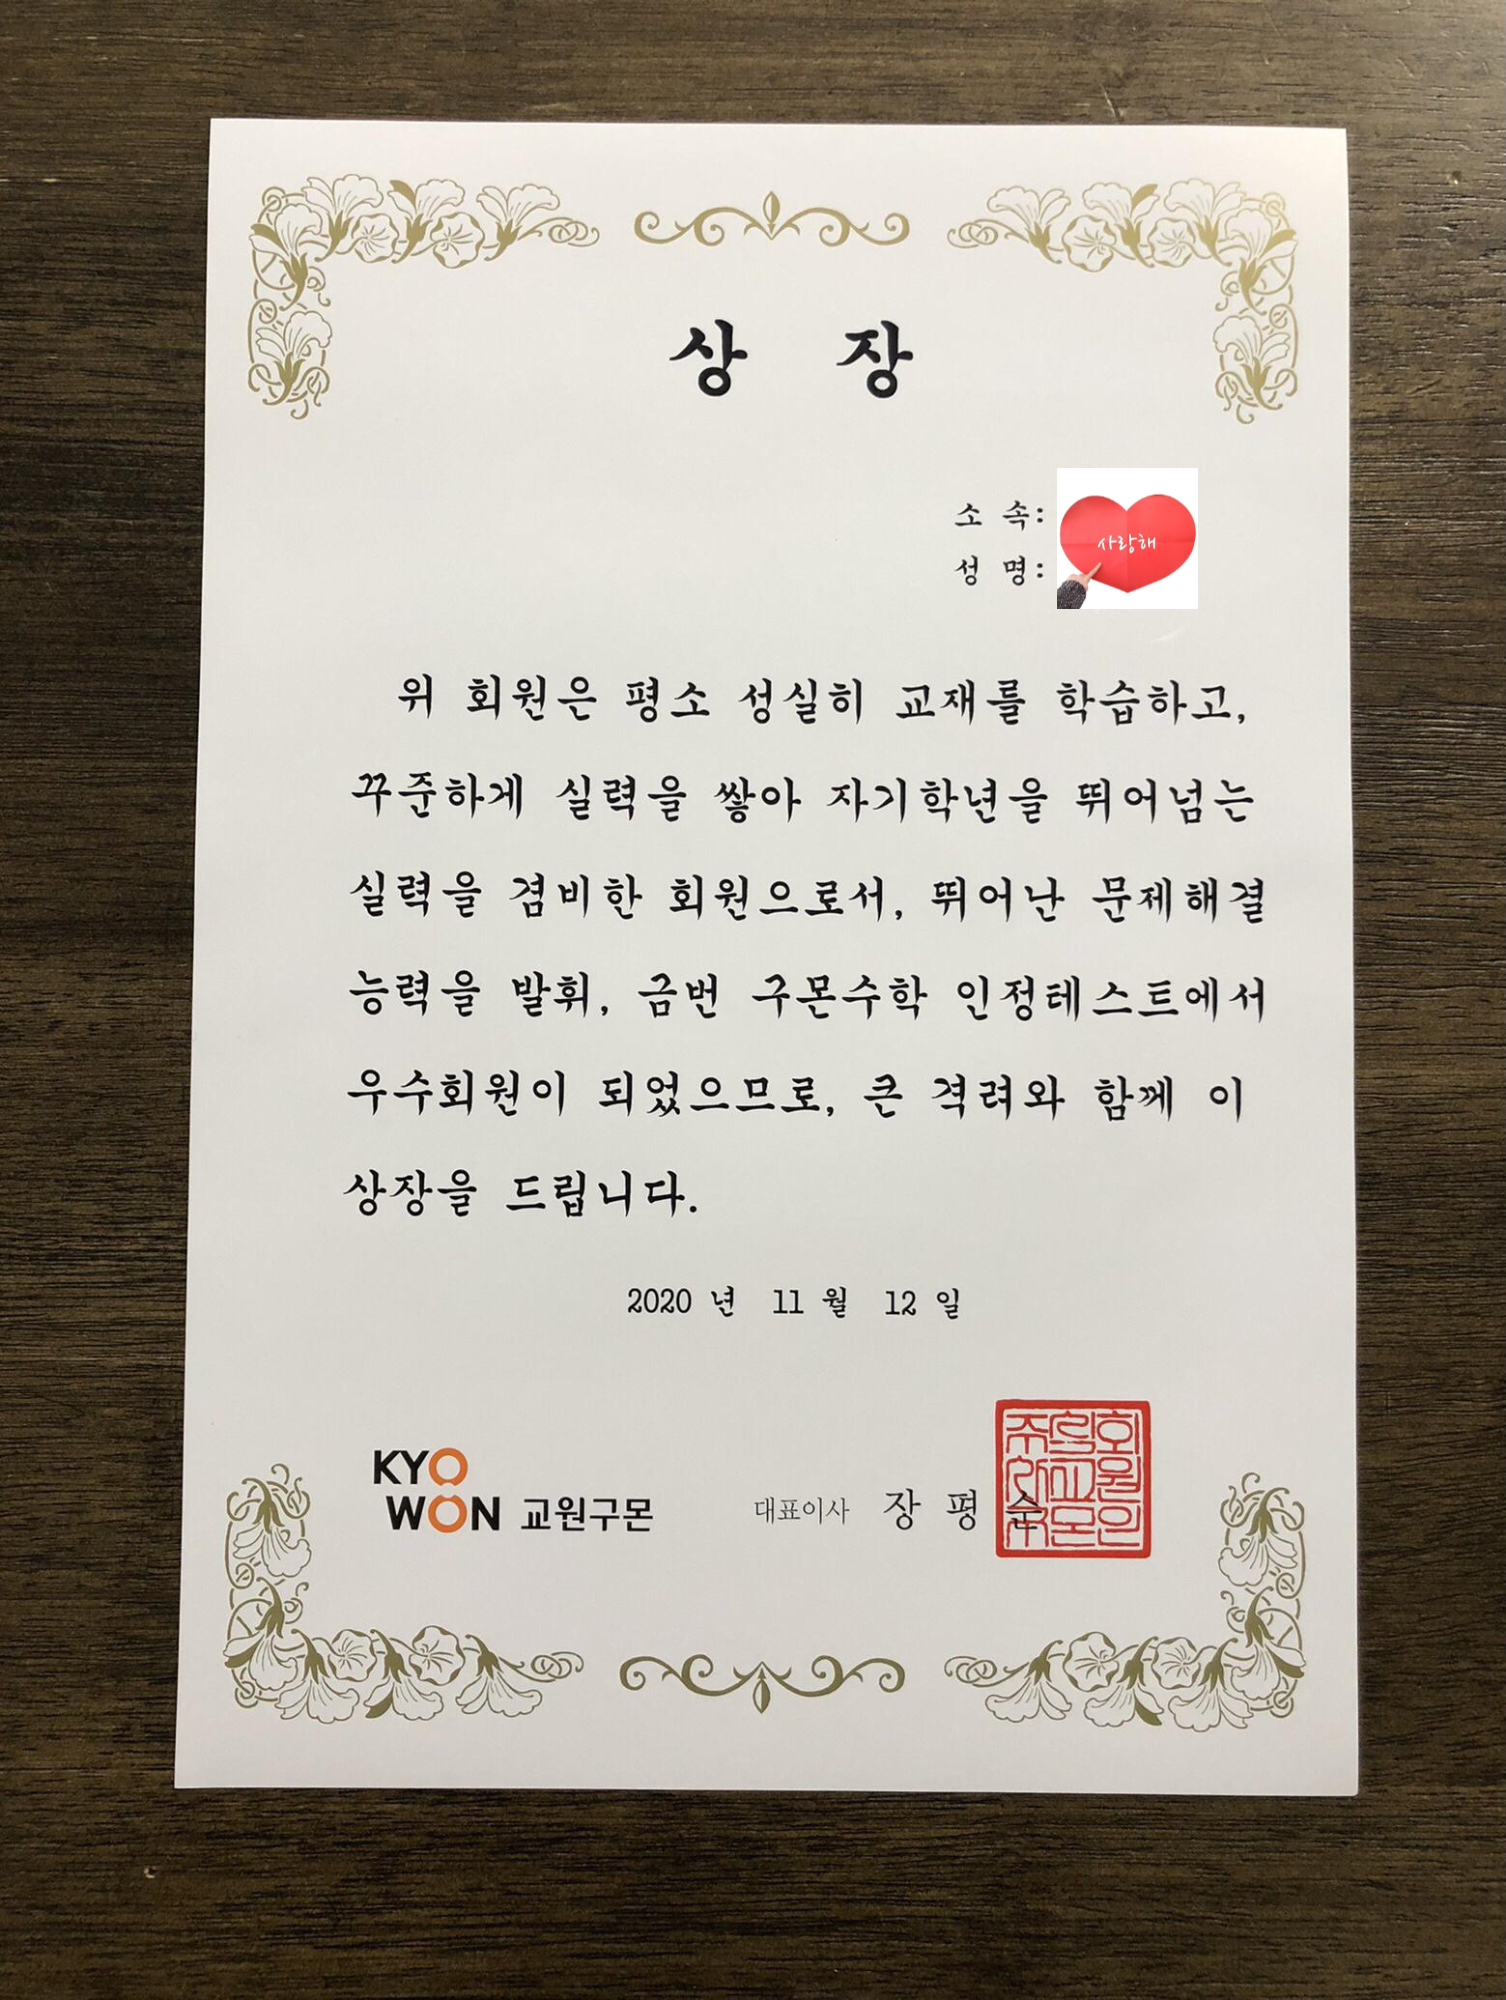 상 장
소 속:
성 명:
사랑해
위 회원은 평소 성실히 교재를 학습하고,
꾸준하게 실력을 쌓아 자기학년을 뛰어넘는
실력을 겸비한 회원으로서, 뛰어난 문제해결
능력을 발휘, 금번 구몬수학 인정테스트에서
우수회원이 되었으므로, 큰 격려와 함께 이
상장을 드립니다.
2020 년 11 월 12 일
KYO
WON 교원구몬
대표이사 장 평 순